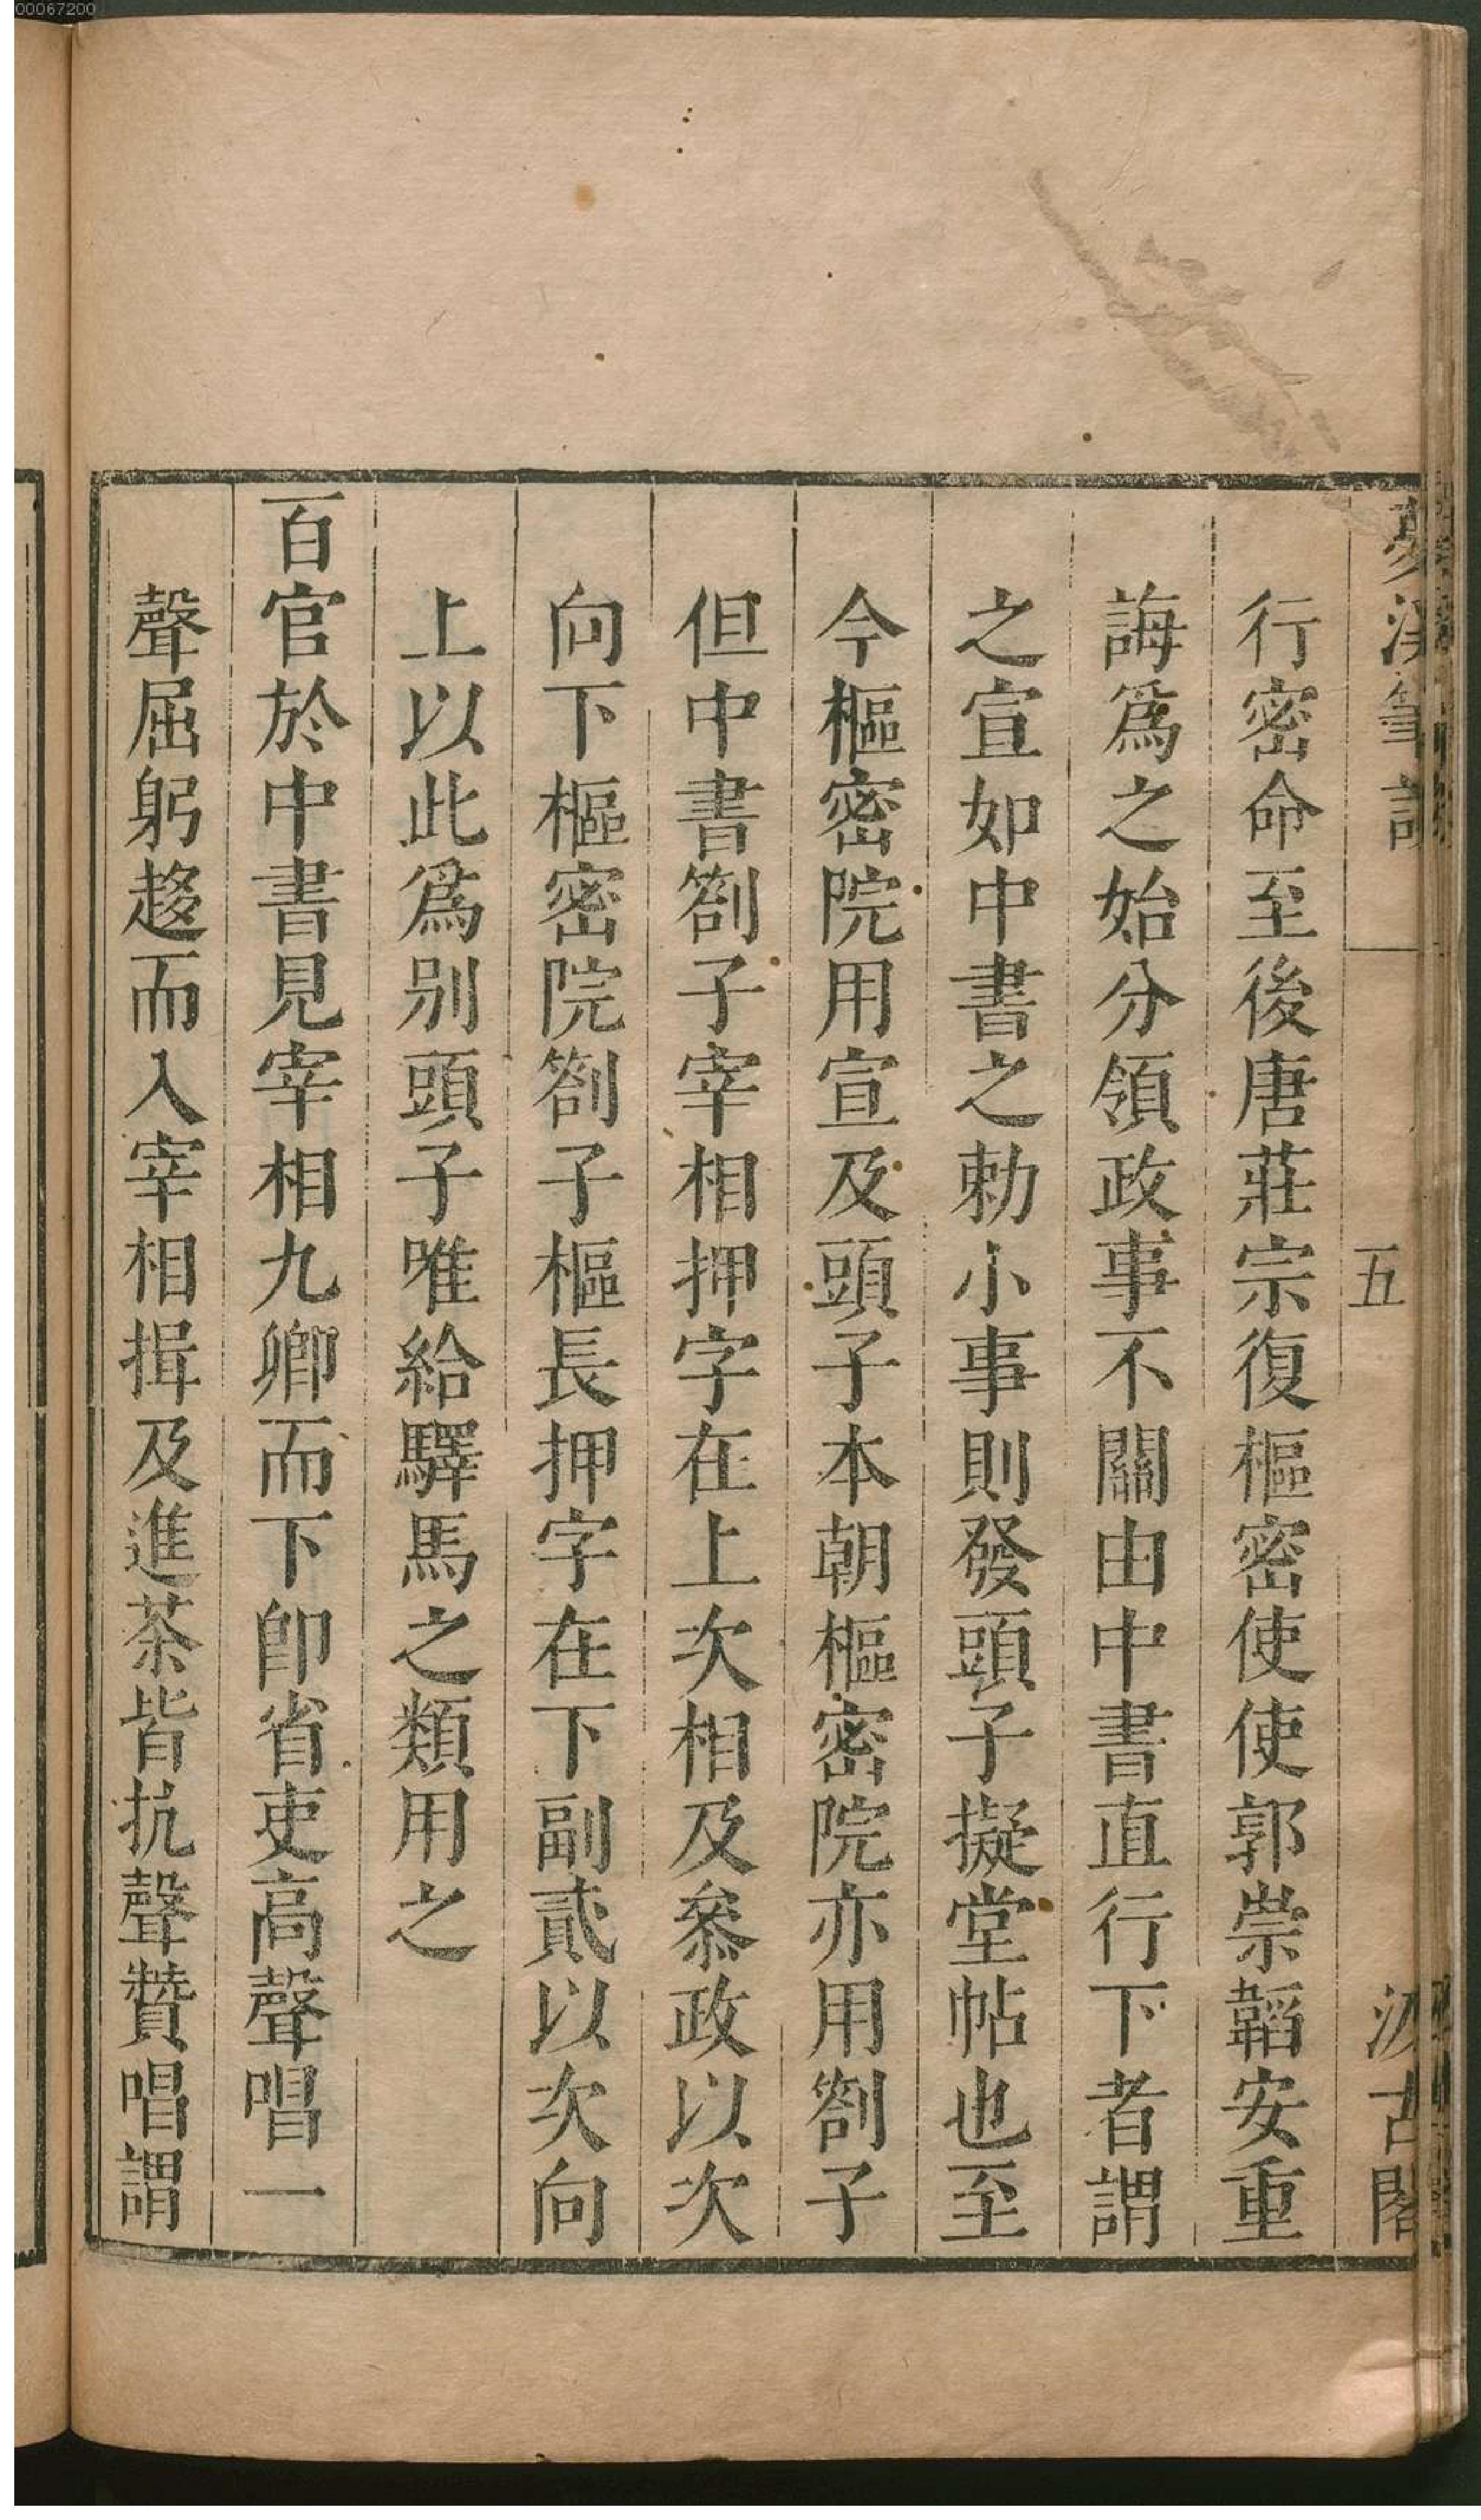 00067200
夢溪筆談
五
汲古閣
行密命至後唐莊宗復樞密使使郭崇韜安重
誨爲之始分領政事不關由中書直行下者謂
之宣如中書之勅小事則發頭子擬堂帖也至
今樞密院用宣及頭子本朝樞密院亦用劄子
但中書劄子宰相押字在上次相及叅政以次
向下樞密院劄子樞長押字在下副貳以次向
上以此爲别頭子唯給驛馬之類用之
百官於中書見宰相九卿而下卽省吏高聲唱一
聲屈躬趍而入宰相揖及進茶皆抗聲贊唱謂